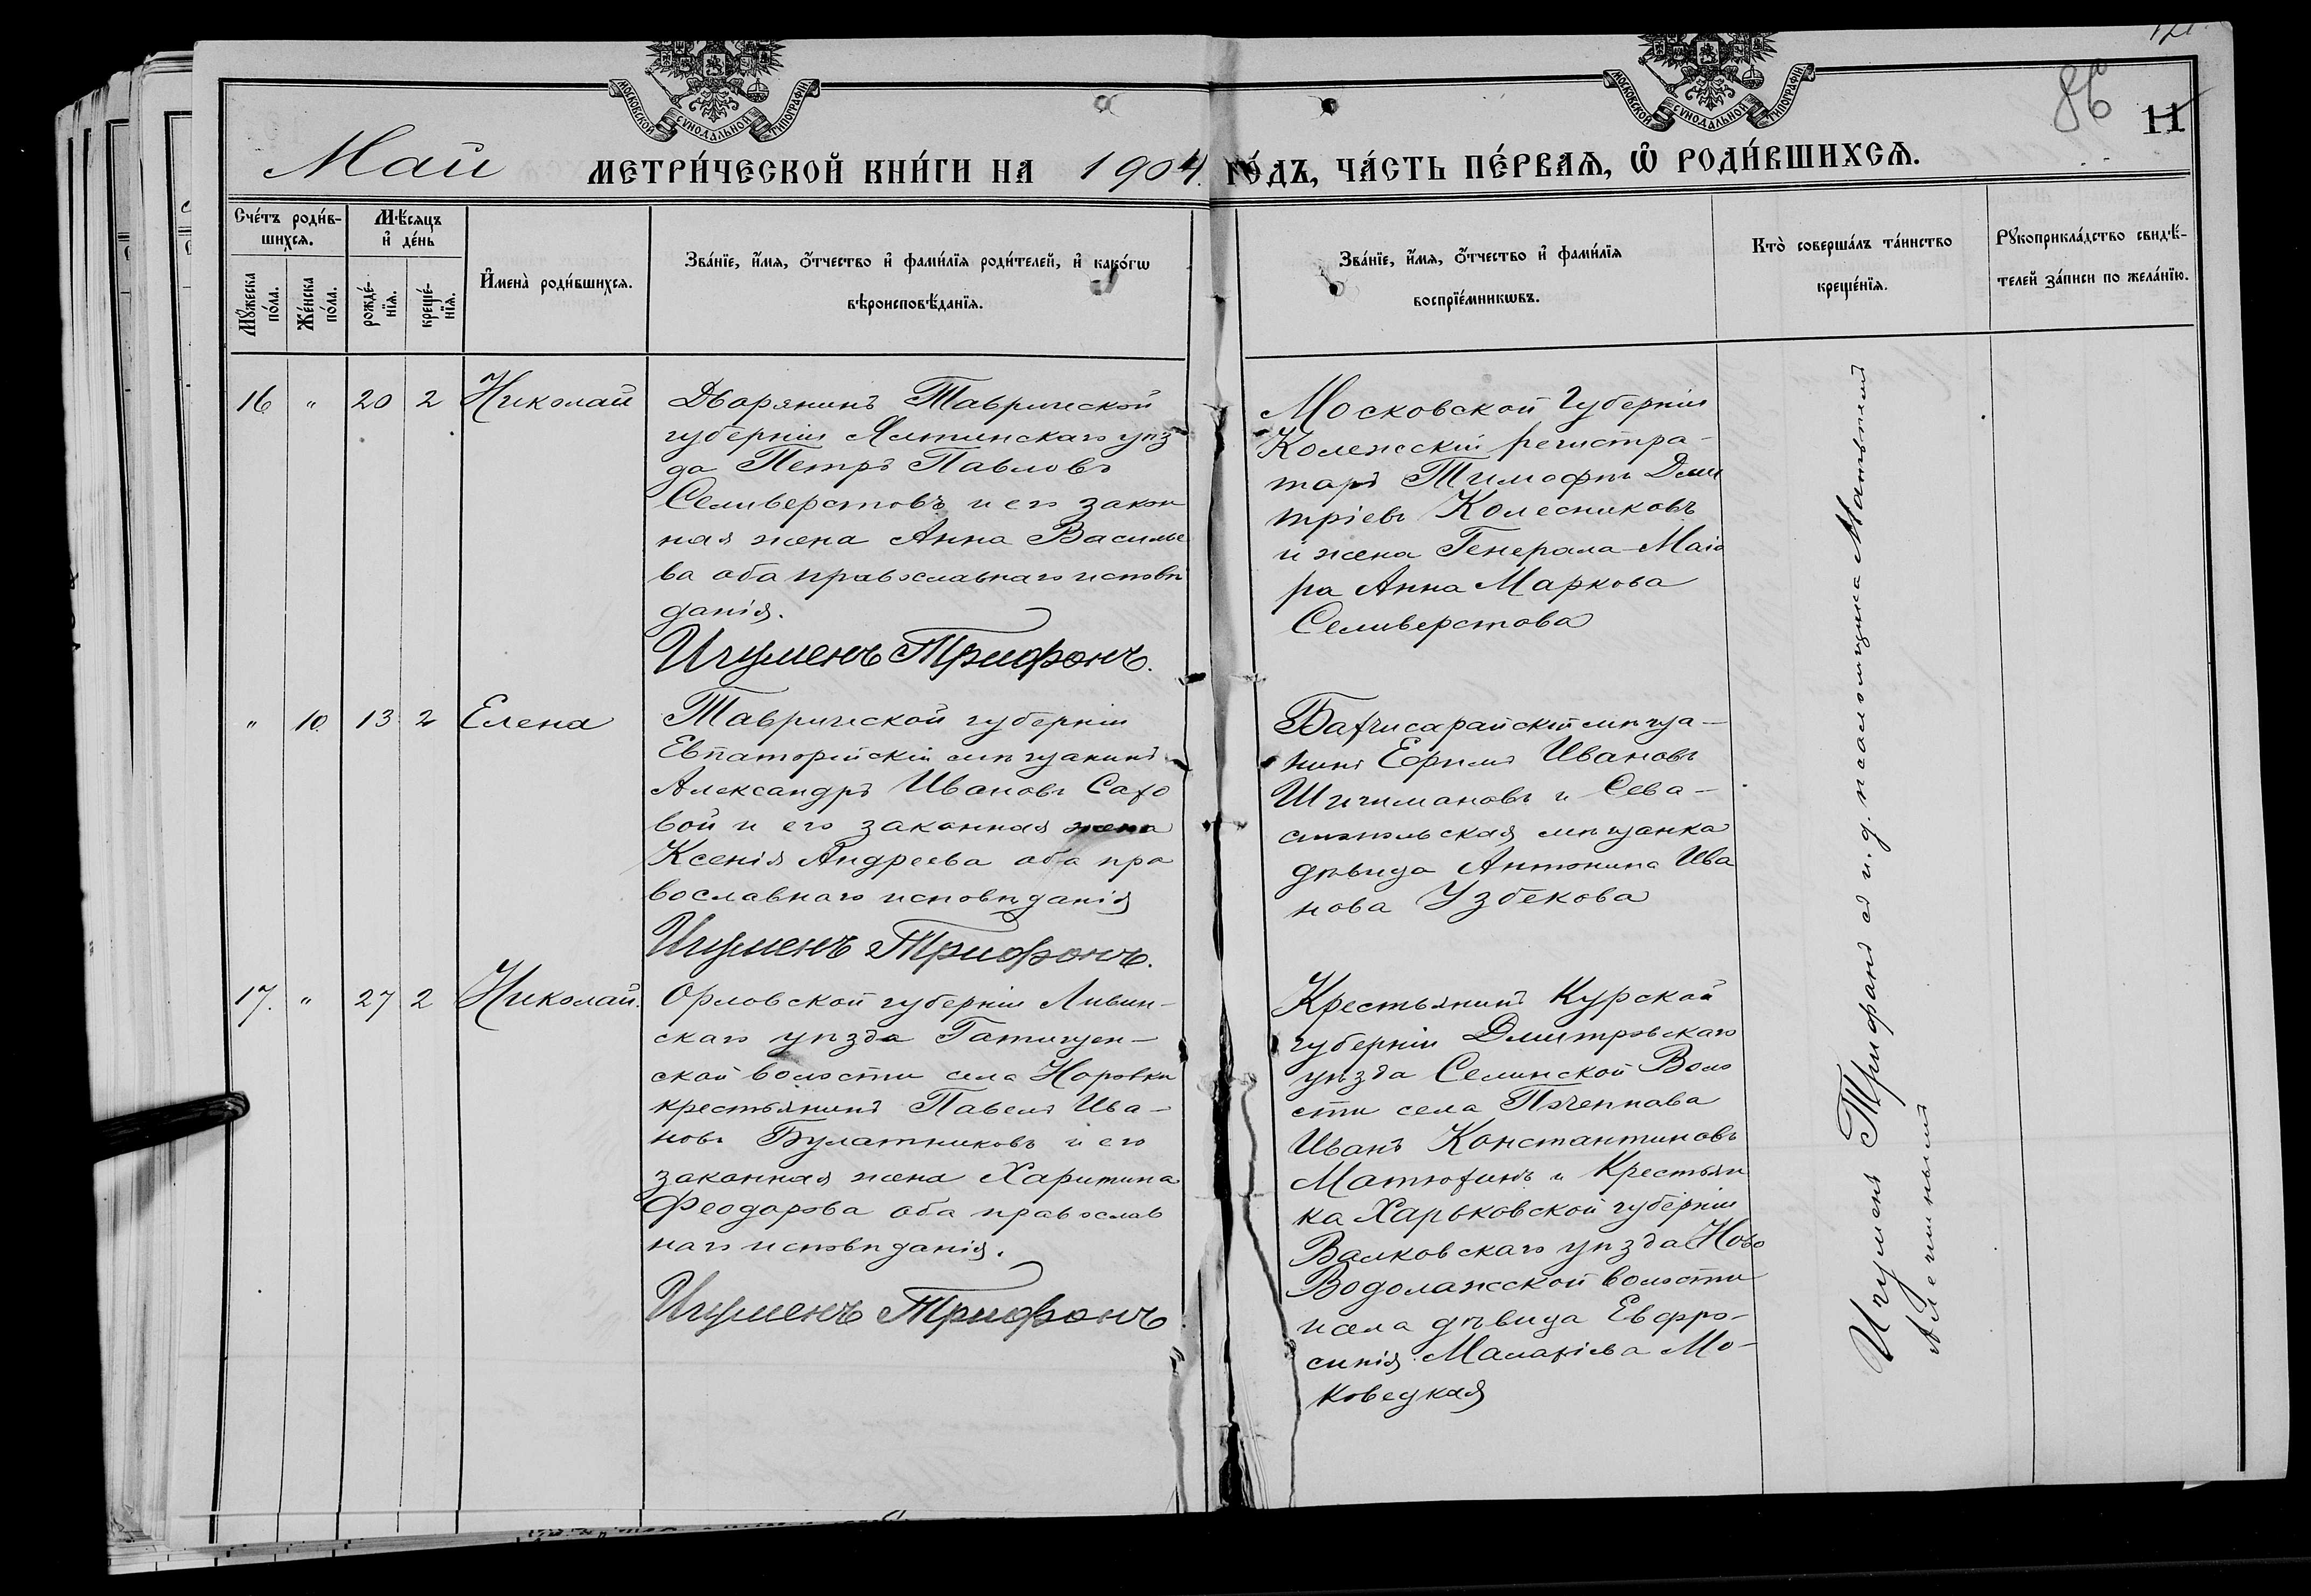 МОСКОВСКОЙ СУНОДАЛЬНОЙ ТИПОГРАФІИ
МОСКОВСКОЙ СУНОДАЛЬНОЙ ТИПОГРАФІИ
86
11
Май МЕТРИ́ЧЕСКОЙ КНИ́ГИ НА 1904. ГО́ДЪ, ЧА́СТЬ ПЕ́РВАѦ, Ѿ РОДИ́ВШИХСѦ.
Сче́тъ роди́в-
шихсѧ.
Мꙋ́жеска
по́ла.
Же́нска
по́ла.
Мѣ́сяцъ
и҆ де́нь
рожде́-
нїѧ.
креще́-
нїѧ.
И҆мена̀ роди́вшихсѧ.
Зва́нїе, и҆́мѧ, ѻ҆́тчество и҆ фами́лїѧ роди́телей, и҆ како́гѡ
вѣроисповѣ́данїѧ.
Зва́нїе, и҆́мѧ, ѻ҆́тчество и҆ фами́лїѧ
воспрїе́мникѡвъ.
Кто̀ соверша́лъ та́инство
креще́нїѧ.
Рꙋкоприкла́дство свидѣ́-
телей за́писи по жела́нїю.
16 " 20 2 Николай
Дворянинъ Таврической
губерніи Ялтинскаго уѣз
да Петръ Павловъ
Селиверстовъ и его закон
ная жена Анна Василье
ва оба православнаго исповѣ
данія.
Игуменъ Трифонъ.
Московской Губерніи
Колежскій регистра-
торъ Тимофѣй Дми
тріевъ Колесниковъ
и жена Генерала-Маіо
ра Анна Маркова
Селиверстова
" 10. 13 2 Елена
Таврической губерніи
Евпаторійскій мѣщанинъ
Александръ Ивановъ Сахо
вой и его законная жена
Ксенія Андреева оба пра
вославнаго исповѣданія
Игуменъ Трифонъ.
Бахчисарайскій мѣща-
нинъ Ефимъ Ивановъ
Шичмановъ и Сева-
стопольская мѣщанка
дѣвица Антонина Ива
нова Узбекова
17. " 27 2 Николай.
Орловской губерніи Ливин-
скаго уѣзда Гатищен-
ской волости села Норовки
крестьянинъ Павелъ Ива-
новъ Булатниковъ и его
законная жена Харитина
Феодорова оба православ
наго исповѣданія.
Игуменъ Трифонъ
Крестьянинъ Курской
губерніи Дмитровскаго
уѣзда Селинской Воло
сти села
Иванъ Константиновъ
Матюхинъ и Крестьян
ка Харьковской губерніи
Валковскаго уѣзда Ново
Водолажской волости
и села дѣвица Евфро-
синія Малахіева Мо-
ковецкая
Игуменъ Трифонъ съ и. д. псаломщика Матвѣемъ